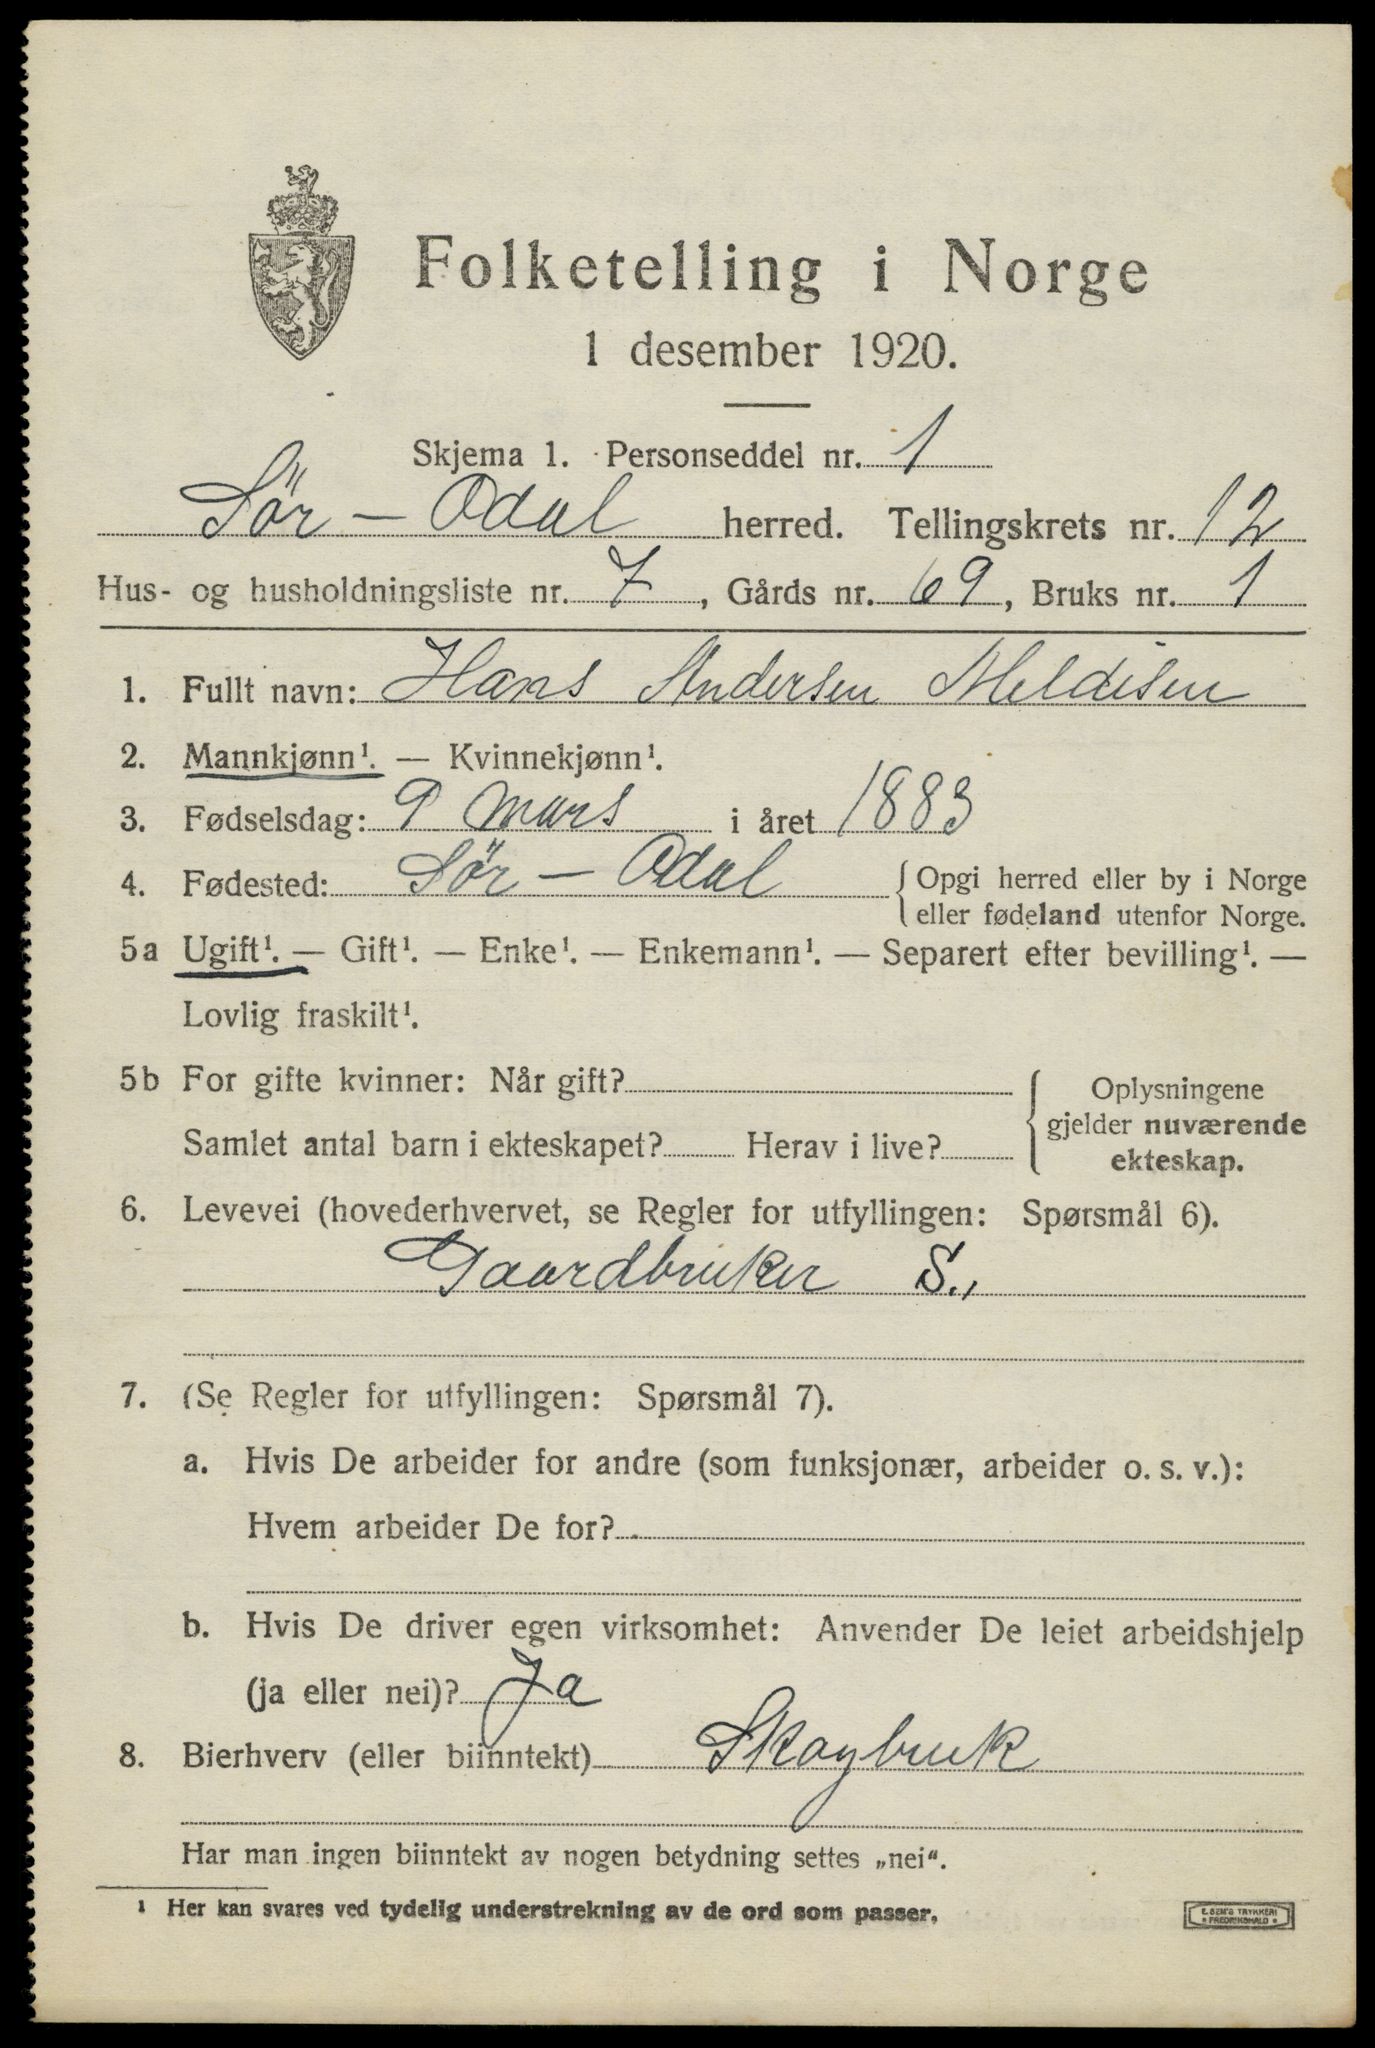 Folketelling i Norge
1 desember 1920.
Skjema 1. Personseddel nr. 1
Sör - Odal herred. Tellingskrets nr. 12
Hus- og husholdningsliste nr. 7, Gårds nr. 69, Bruks nr. 1
1. Fullt navn: Hans Andersen Meldisen
2. Mannkjønn¹. — Kvinnekjønn¹.
3. Fødselsdag: 9 mars i året 1883
4. Fødested: Sör - Odal { Opgi herred eller by i Norge
eller fødeland utenfor Norge.
5a Ugift¹. — Gift¹. — Enke¹. — Enkemann¹. — Separert efter bevilling¹. —
Lovlig fraskilt¹.
5b For gifte kvinner: Når gift?
Samlet antal barn i ekteskapet? Herav i live?
{ Oplysningene
gjelder nuværende
ekteskap.
6. Levevei (hovederhvervet, se Regler for utfyllingen: Spørsmål 6).
Gaardbruker S.,
7. (Se Regler for utfyllingen: Spørsmål 7).
a. Hvis De arbeider for andre (som funksjonær, arbeider o. s. v.):
Hvem arbeider De for?
b. Hvis De driver egen virksomhet: Anvender De leiet arbeidshjelp
(ja eller nei)? Ja
8. Bierhverv (eller biinntekt) Skogbruk
Har man ingen biinntekt av nogen betydning settes „nei“.
¹ Her kan svares ved tydelig understrekning av de ord som passer.
E. SEM'S TRYKKERI
• FREDRIKSHALD •